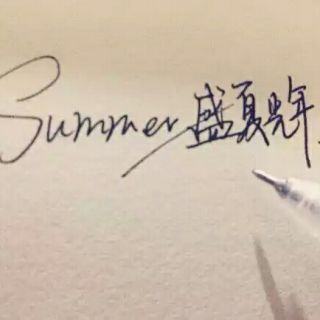 Summer 盛夏光年